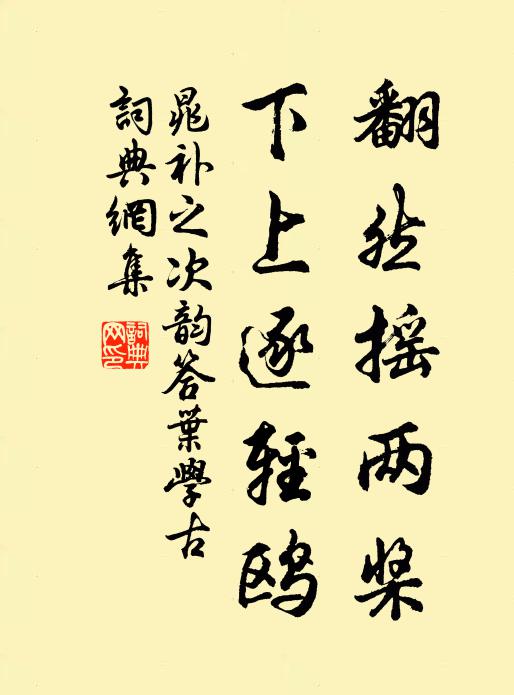 翻然摇两桨
下上逐輕鸥
晁补之次韵答葉學古
詞典網集
詞典网印